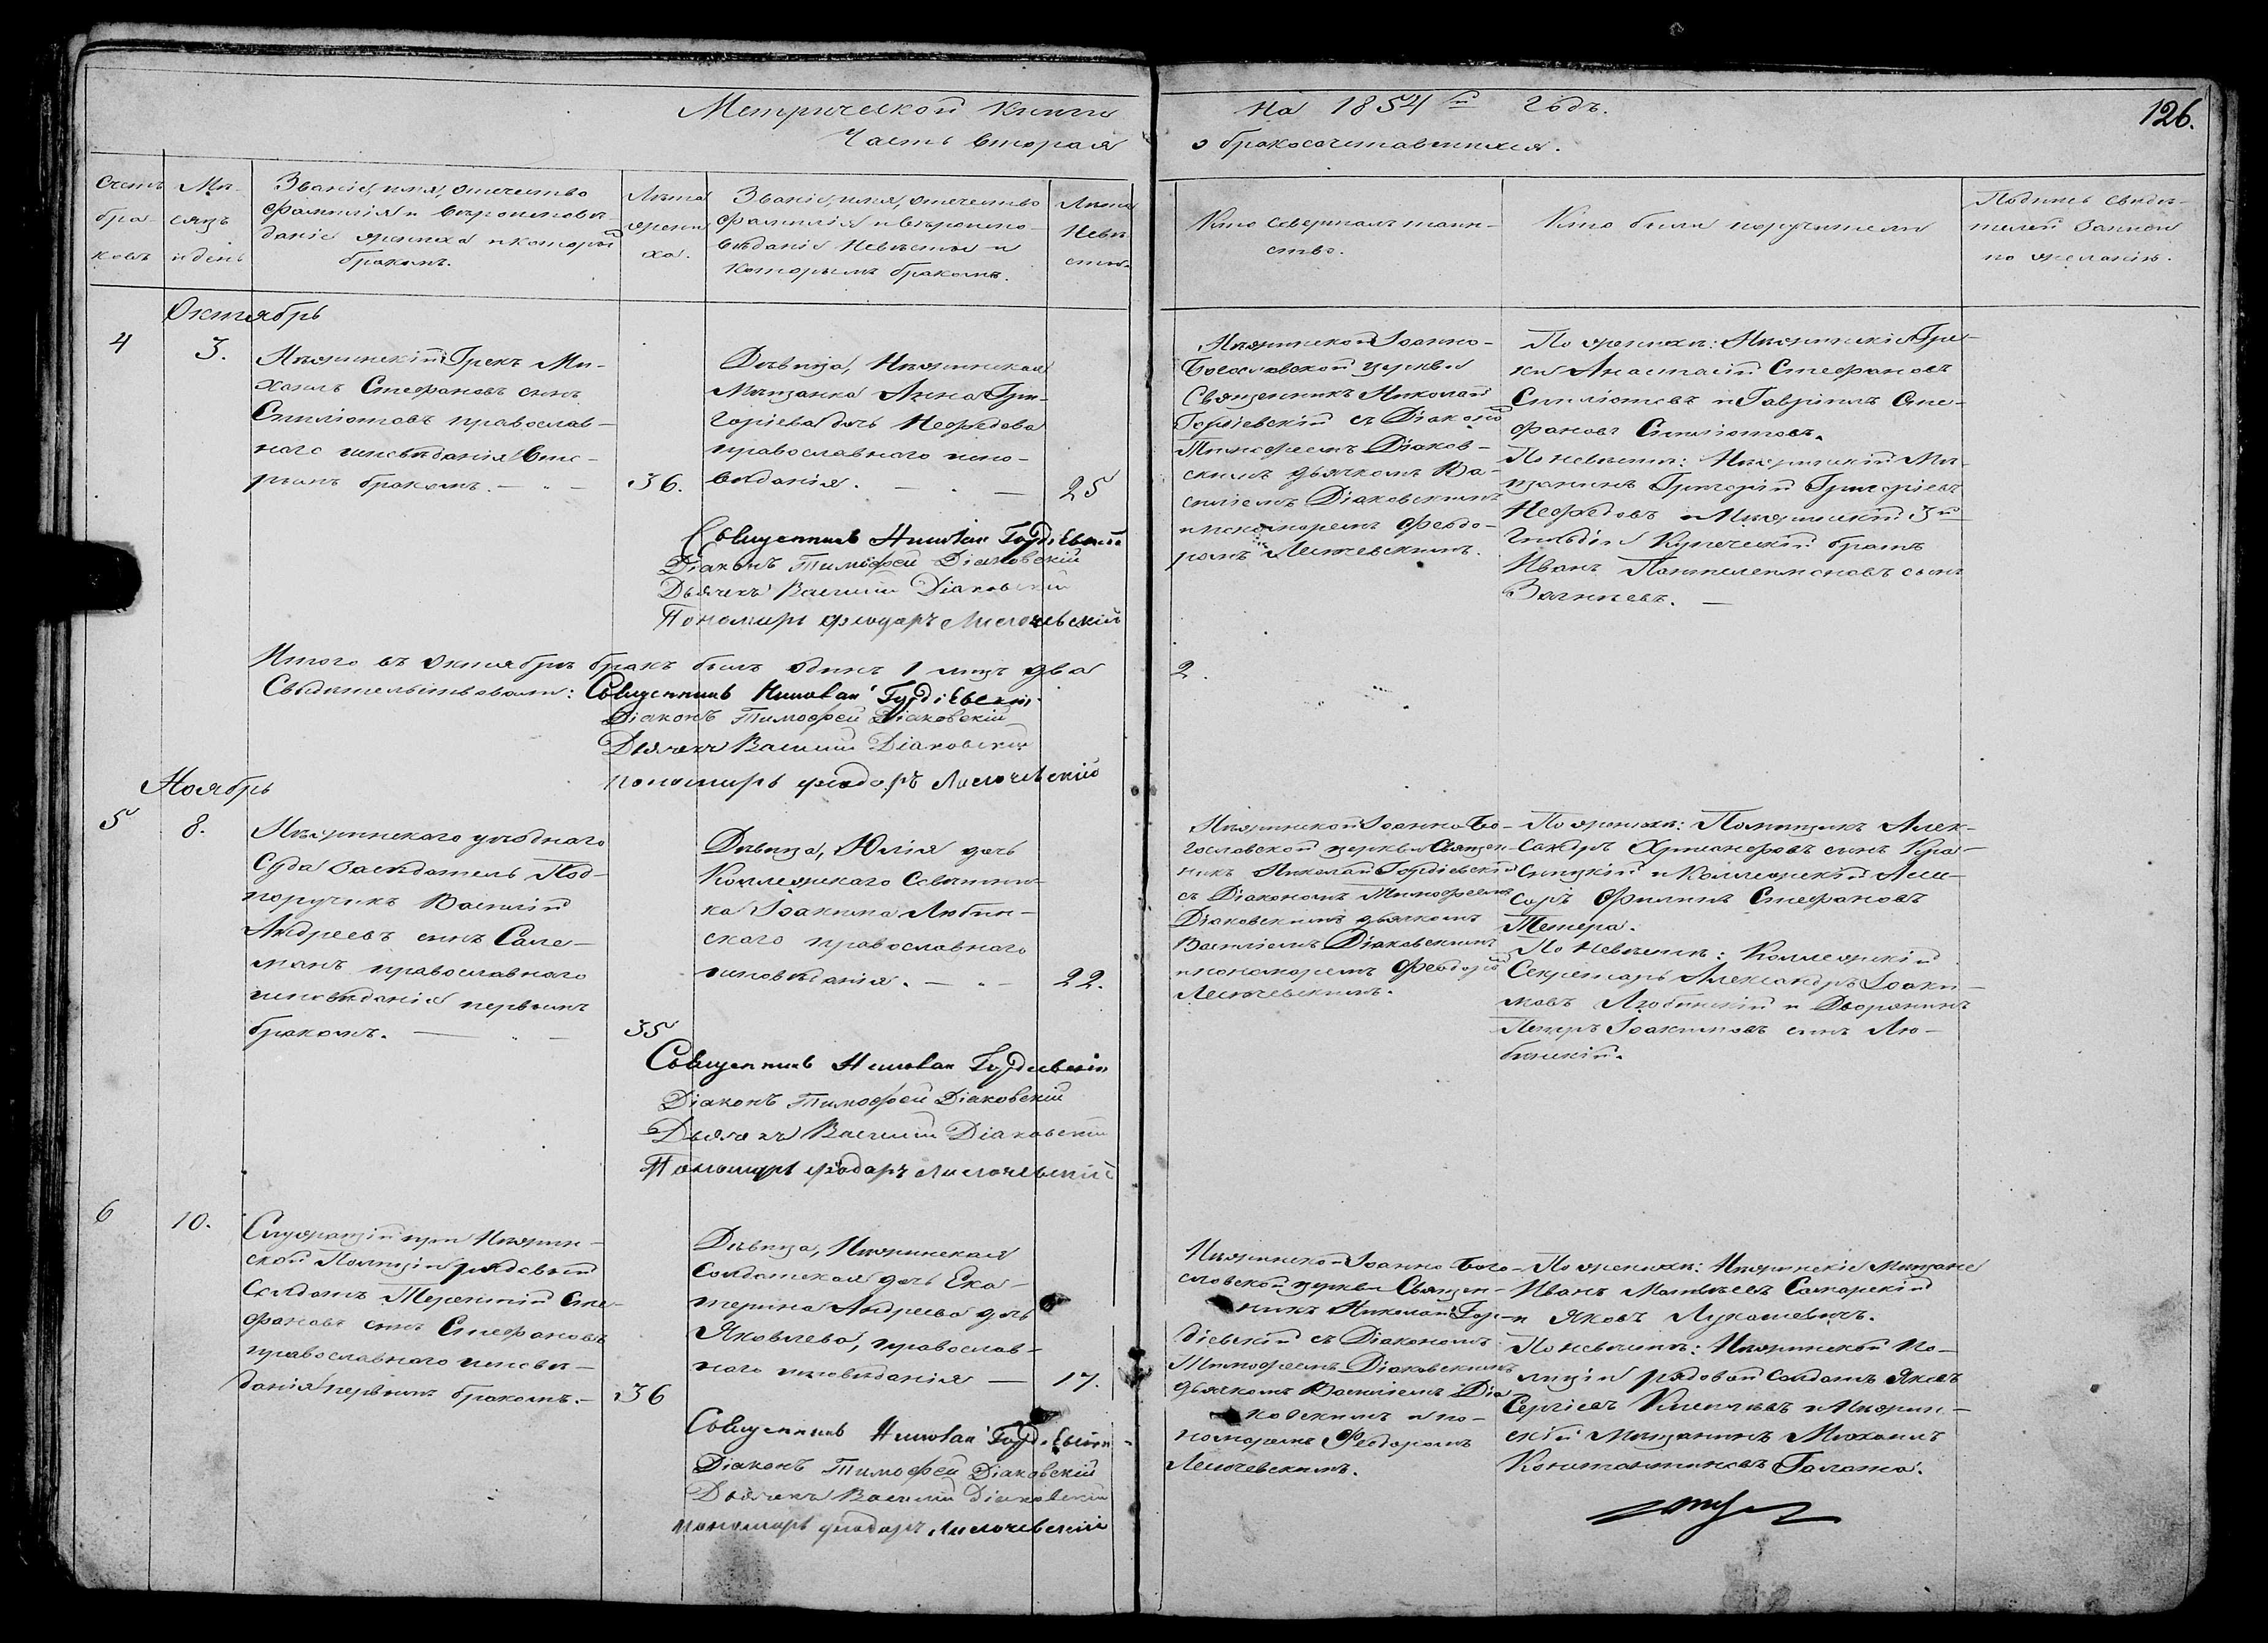 Метрической книги
на 1854й годъ.
126.
Часть вторая
о бракосочетавшихся.
Счетъ браковъ
Мѣсяцъ и день
Званіе, имя, отечество
фамилія и вѣроисповѣ-
даніе жениха и которымъ
бракомъ.
Лѣта
жени
ха.
Званіе, имя, отечество
фамилія и вѣроиспо-
вѣданіе невѣсты и
которымъ бракомъ.
Лѣта
невѣ
сты.
Кто совершалъ таин-
ство.
Кто были поручители
Подпись свидѣ-
телей записи
по желанію.
Октябрь
4
3.
Нѣжинскій Грекъ Ми-
хаилъ Стефановъ сынъ
Спиліотовъ православ-
наго исповѣданія вто-
рымъ бракомъ.
36.
Дѣвица, Нѣжинская
Мѣщанка Анна Гри-
горіева дочь Нефедова
православнаго испо-
вѣданія.
25
Нѣжинской Іоанно-
Богословской церкви
Священникъ Николай
Гордіевскій съ Діакономъ
Тимофеемъ Діаков-
скимъ дьячкомъ Ва-
силіемъ Діаковскимъ
и пономоремъ Феодо-
ромъ
По женихѣ: Нѣжинскіе Гре-
ки Анастасій Стефановъ
Спиліотовъ и Гавріилъ Сте-
фановъ Спиліотовъ.
По невѣстѣ: Нѣжинскій Мѣ-
щанинъ Григорій Григоріевъ
Нефедовъ и Нѣжинскій 3й
гильдіи Купеческій братъ
Иванъ Пантелеимоновъ сынъ
Священникъ Николай Гордіевскій
Діаконъ Тимофей Діаковскій
Дьячекъ Василій Діаковскій
Пономарь Феодоръ
Итого въ Октябрѣ бракъ былъ одинъ 1 лицъ два
2.
Свидѣтельствовали: Священникъ Николай Гордіевскій
Діаконъ Тимофей Діаковскій
Дьячекъ Василій Діаковскій
пономарь Феодоръ
Ноябрь
5
8.
Нѣжинскаго уѣзднаго
Суда засѣдатель Под-
поручикъ Василій
Андреевъ сынъ Сале-
манъ православнаго
исповѣданія первымъ
бракомъ.
35
Дѣвица, Юлія дочь
Коллежскаго Совѣтни-
ка Іоакима Любин-
скаго православнаго
исповѣданія.
22.
Нѣжинской Іоанно Бо-
гословской церкви Священ-
никъ Николай Гордіевскій
съ Діакономъ Тимофеемъ
Діаковскимъ дьячкомъ
Василіемъ Діаковскимъ
и пономоремъ Феодоромъ
По женихѣ: Помѣщикъ Алек-
сандръ Христофоровъ сынъ
и Коллежскій Асе-
соръ Филипъ Стефановъ
По невѣстѣ: Коллежскій
Секретарь Александръ Іоаки-
мовъ Любинскій и Дворянинъ
Петръ Іоакимовъ сынъ Лю-
бинскій.
Священникъ Николай Гордіевскій
Діаконъ Тимофей Діаковскій
Дьячекъ Василій Діаковскій
Пономарь Феодоръ
6
10.
Служащій при Нѣжин-
ской Полиціи рядовый
Солдатъ Терентій Сте-
фановъ сынъ Стефановъ
православнаго исповѣ-
данія первымъ бракомъ.
36
Дѣвица, Нѣжинская
Солдатская дочь Ека-
терина Андреева дочь
Яковлева, православ-
наго исповѣданія
17.
Нѣжинской Іоанно Бого-
словской церкви Священ-
никъ Николай Гор-
діевскій съ Діакономъ
Тимофеемъ Діаковскимъ
дьячкомъ Василіемъ Діа-
ковскимъ и по-
номоремъ Феодоромъ
По женихѣ: Нѣжинскіе Мѣщане
Иванъ Матвѣевъ Самарскій
и Яковъ Лукашевичъ.
По невѣстѣ: Нѣжинской По-
лиціи рядовой солдатъ Яковъ
Сергіевъ и Нѣжин-
скій Мѣщанинъ Михаилъ
Константиновъ
Священникъ Николай Гордіевскій
Діаконъ Тимофей Діаковскій
Дьячекъ Василій Діаковскій
пономарь Феодоръ